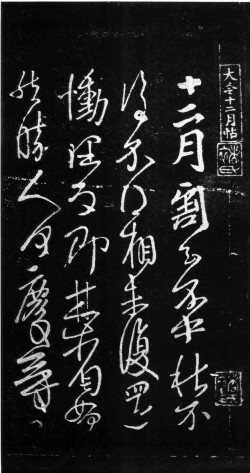 大令十二月帖
十二月割至不中秋不
復不得相未復還
慟理為即甚省如何
然勝人何慶等